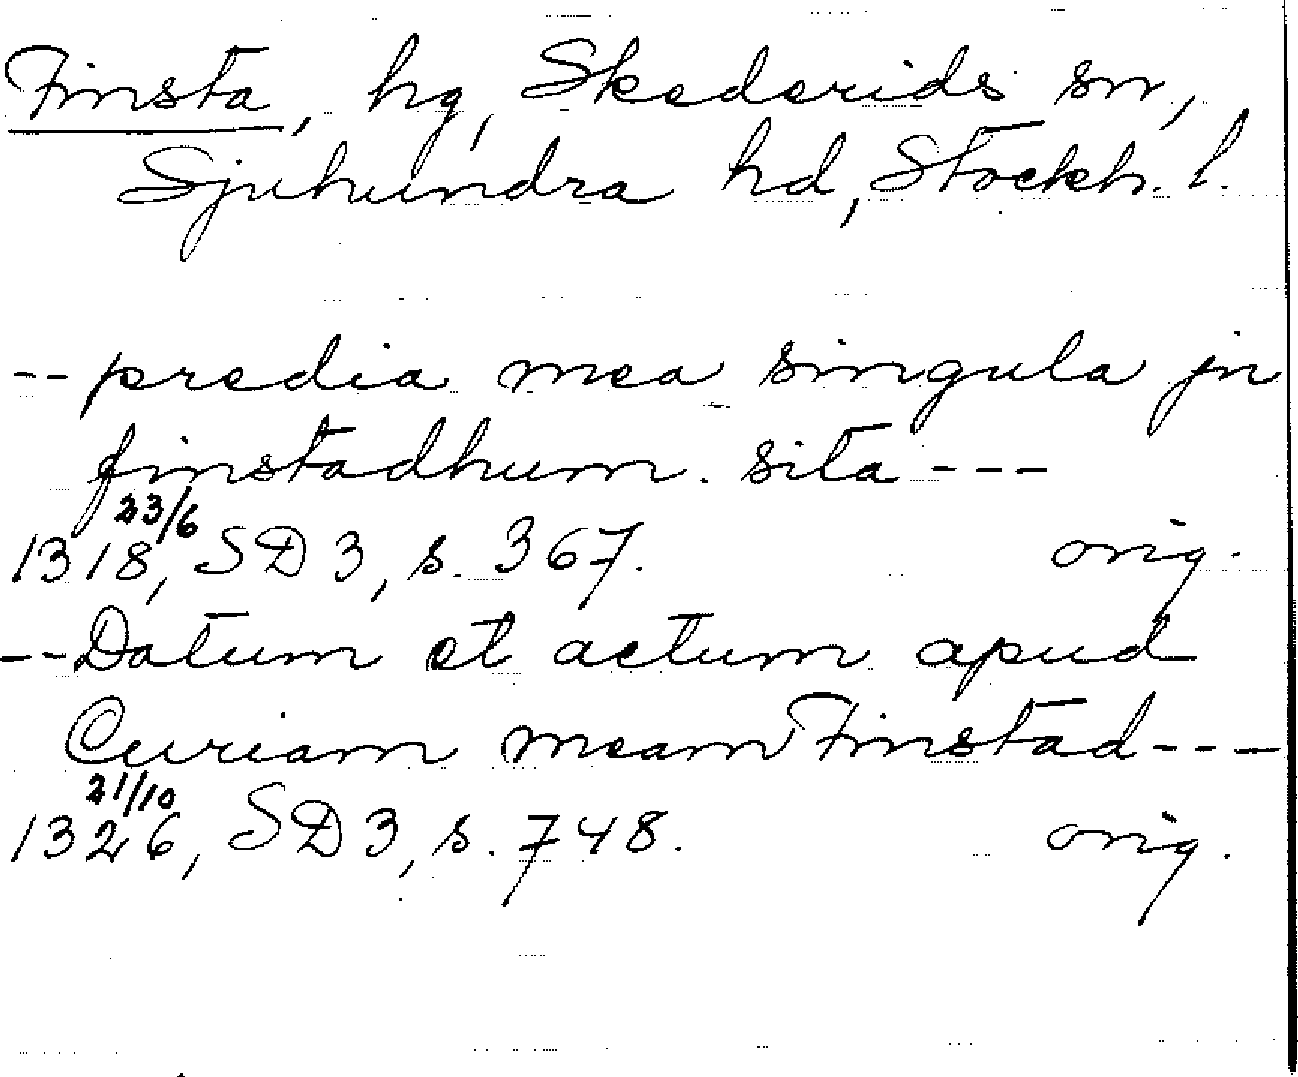 Finsta, hg, Skederids sn,
Sjuhundra hd, Stockh. l.
-- predia mea singula jn
finstadhum. sita ---
23/6
1318, SD 3, s. 367. orig.
-- Datum et actum apud
Curiam meam Finstad ---
21/10
1326, SD 3, s. 748. orig.